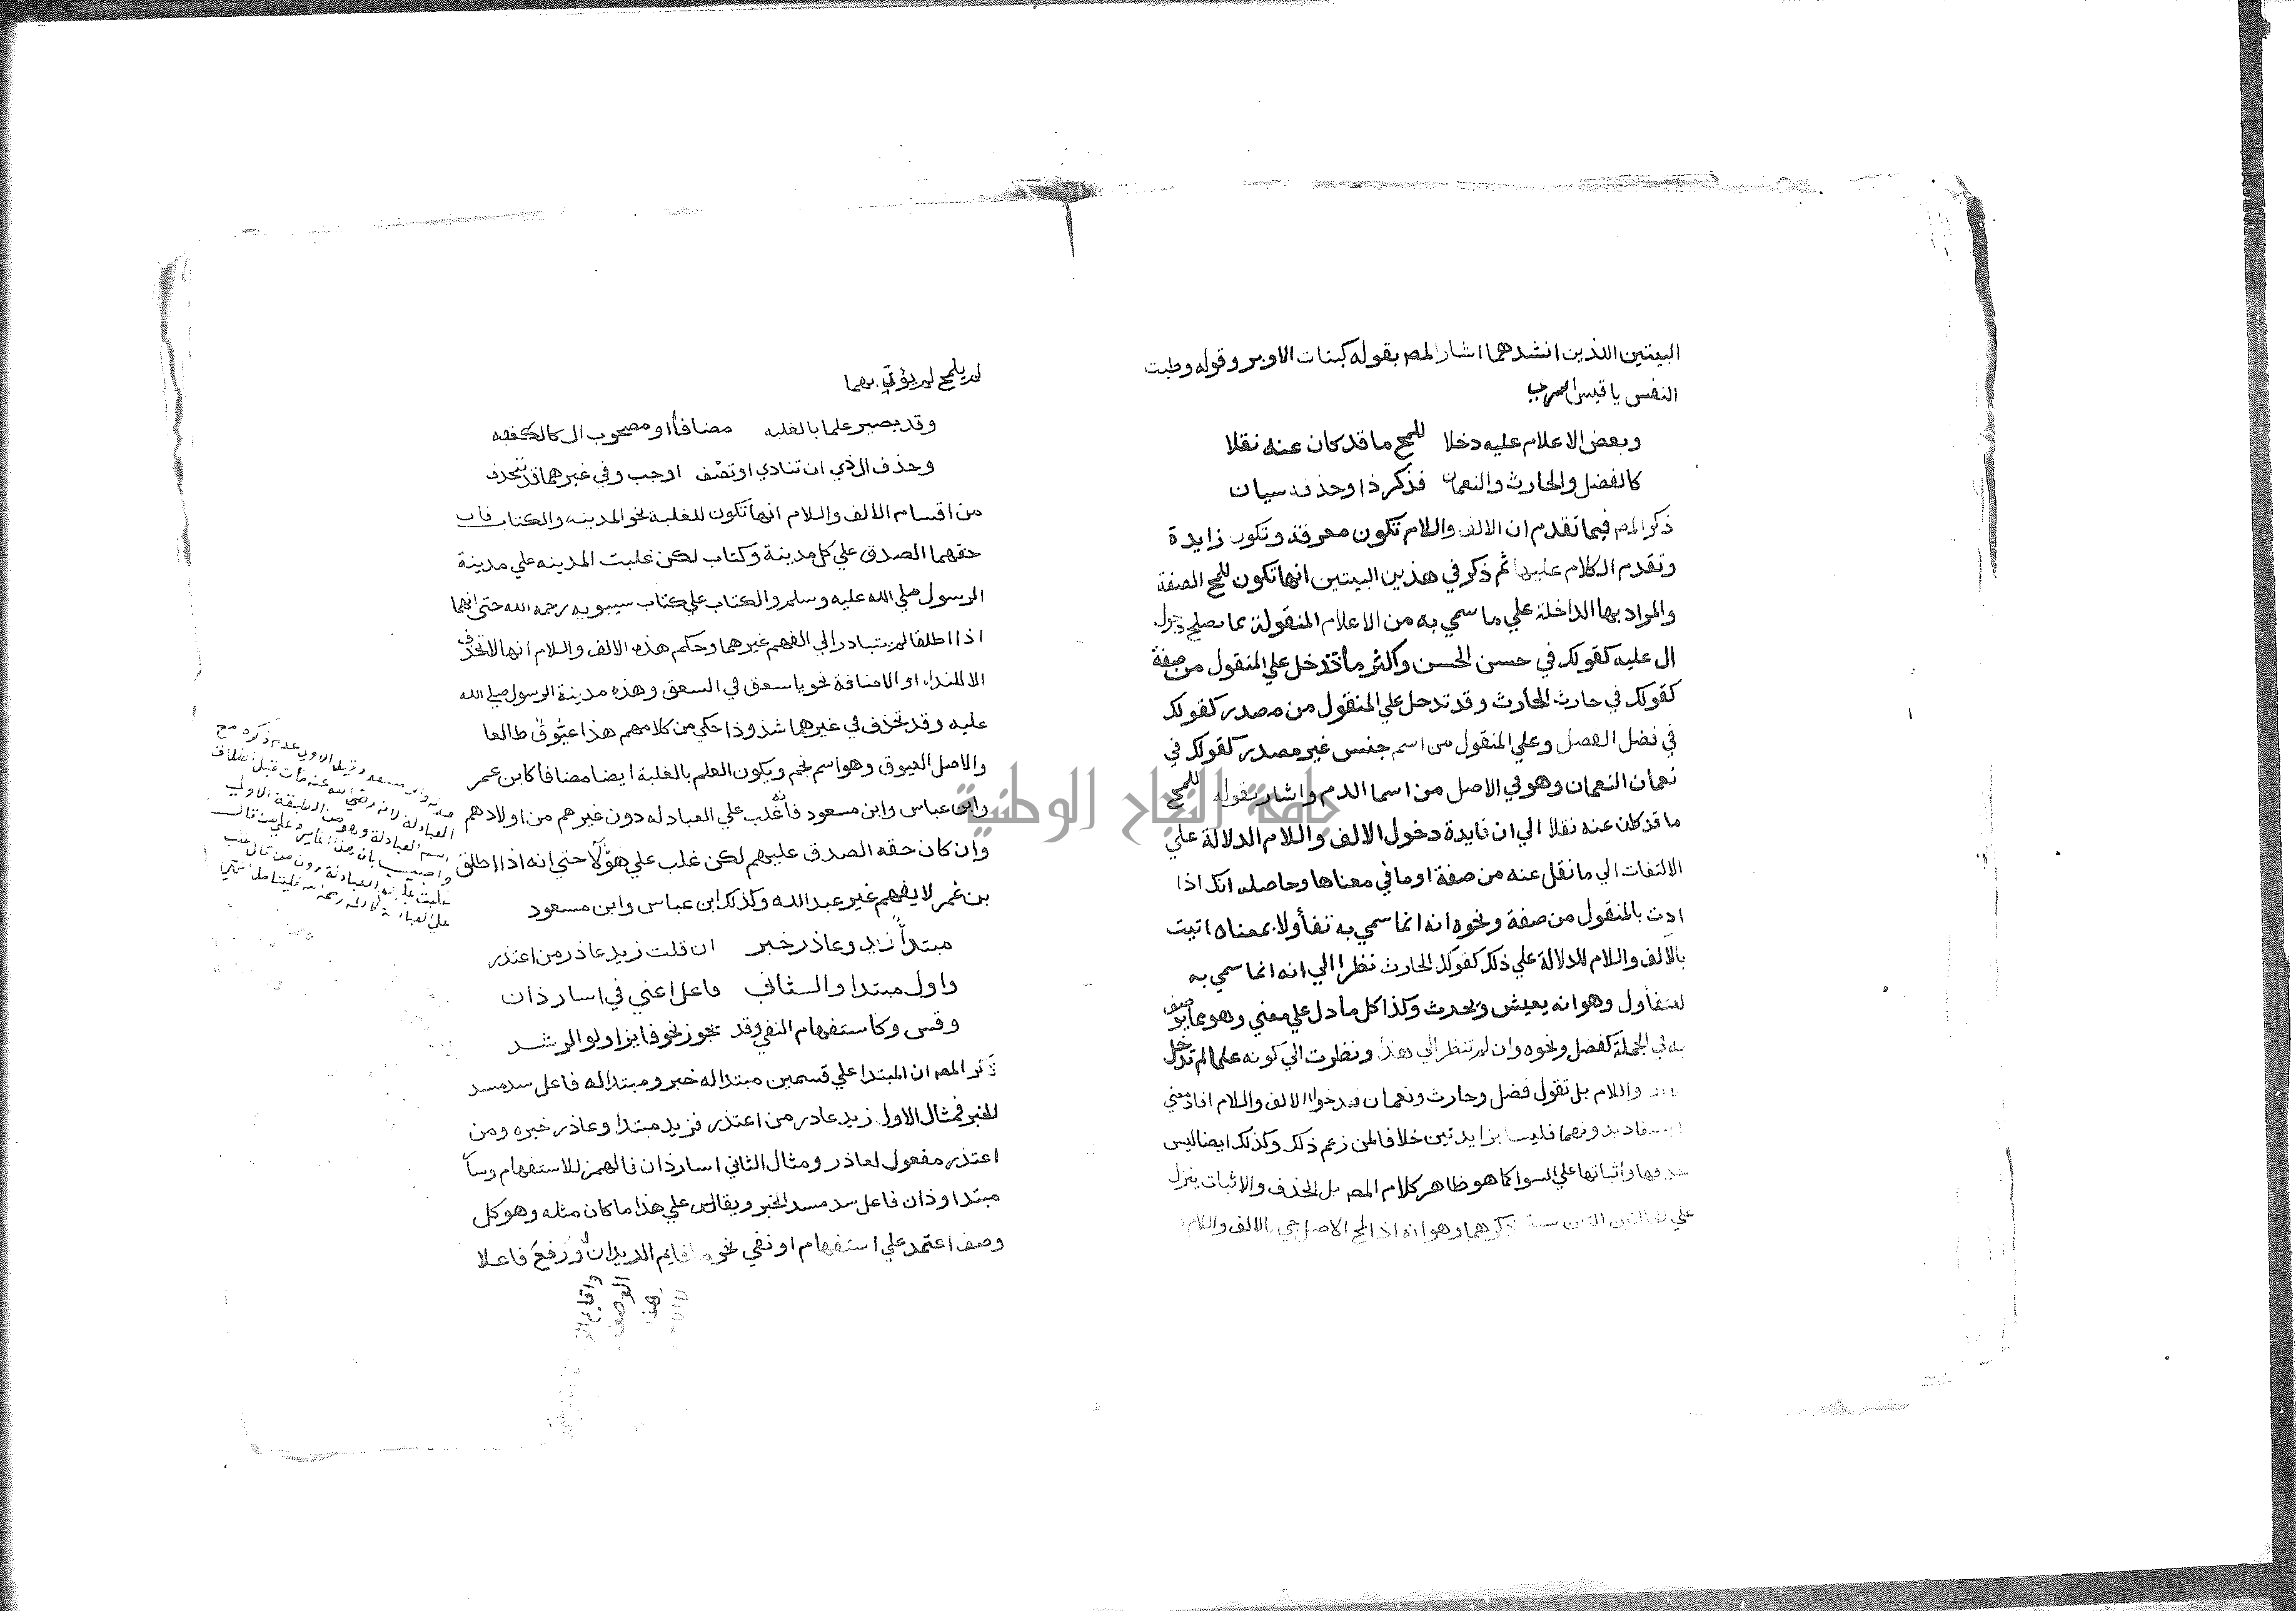 البيتين اللذين انشدهما اشار المصر بقوله كبنات الاوبر وقوله وطبت
النفس يا قيس السري
وبعض الاعلام عليه دخلا للمح ما قد كان عنه نقلا
كالفضل والحارث والنعمان فذكر ذا وحذفه سيان
ذكر المصر فيما تقدم ان الالف واللام تكون معرفة وتكون زايدة
وتقدم الكلام عليها ثم ذكر في هذين البيتين انها تكون للمح الصفة
والمراد بها الداخلة علي ما سمي به من الاعلام المنقولة مما يصلح دخول
ال عليه كقولك في حسن الحسن واكثر ما تدخل علي المنقول من صفة
كقولك في حارث الحارث وقد تدخل علي المنقول من مصدر كقولك
في فضل الفضل وعلي المنقول من اسم جنس غير مصدر كقولك في
نعمان النعمان وهو في الاصل من اسما الدم واشار بقوله للمح
ما قد كان عنه نقلا الي ان فايدة دخول الالف واللام الدلالة علي
الالتفات الي ما نقل عنه من صفة او ما في معناها وحاصله انك اذا
اردت بالمنقول من صفة ونحوه انه انما سمي به تفأولا بمعناه اتيت
بالالف واللام للدلالة علي ذلك كقولك الحارث نظرا الي انه انما سمي به
للتفأول وهو انه يعيش ويحدث وكذا كل ما دل علي معني وهو مما يوصف
به في الجملة كفضل ونحوه وان لم تنظر الي هذا ونظرت الي كونه علما لم تدخل
واللام بل تقول فضل وحارث ونعمان فدخول الالف واللام افاد معني
لا يستفاد بدونهما فليسا بزايدتين خلافا لمن زعم ذلك وكذلك ايضا ليس
حذفها واثباتها علي السوا كما هو ظاهر كلام المصر بل الحذف والاثبات ينزل
علي الحالتين اللتين سبق ذكرهما وهو انه اذا لمح الاصل جي بالالف واللام
لم يلمح لم يؤت بهما
وقد يصير علما بالغلبه مضافا او مصحوب ال كالعقبه
وحذف ال ذي ان تنادي او تضف اوجب وفي غيرهما قد تنحذف
من اقسام الالف واللام انها تكون للغلبة نحو المدينه والكتاب فان
حقهما الصدق علي كل مدينة وكتاب لكن غلبت المدينه علي مدينة
الرسول صلي الله عليه وسلم والكتاب علي كتاب سيبويه رحمه الله حتي انهما
اذا اطلقا لم يتبادر الي الفهم غيرهما وحكم هذه الالف واللام انها لا تحذف
الا للنداء او الاضافة نحو يا سعق في السعق وهذه مدينة الرسول صلي الله
عليه وقد تحذف في غيرهما شذوذا حكي من كلامهم هذا عيّوق طالعا
والاصل العيوق وهو اسم نجم ويكون العلم بالغلبة ايضا مضافا كابن عمر
وابن عباس وابن مسعود فأنه غلب علي العبادله دون غيرهم من اولادهم
وان كان حقه الصدق عليهم لكن غلب علي هؤلاء حتي انه اذا اطلق
بن عمر لا يفهم غير عبد الله وكذلك ابن عباس وابن مسعود
مبتدأ زيد وعاذر خبر ان قلت زيد عاذر من اعتذر
واول مبتدا والثاني فاعل اغني في اسار ذان
وقس وكاستفهام النفي وقد يجوز نحو فايز اولو الرشد
ذكر المصر ان المبتدا علي قسمين مبتدا له خبر ومبتدا له فاعل سد مسد
الخبر فمثال الاول زيد عاذر من اعتذر فزيد مبتدا وعاذر خبره ومن
اعتذر مفعول لعاذر ومثال الثاني اسار ذان فالهمز للاستفهام وسا
مبتدا وذان فاعل سد مسد الخبر ويقاس علي هذا ما كان مثله وهو كل
وصف اعتمد علي استفهام او نفي نحو اقايم الزيدان ورفع فاعلا
العبادلة لانه رضي الله عنه مات قبل اطلاق
اسم العبادلة وهو من الطبقة الاولي
جامعة النجاح الوطنية